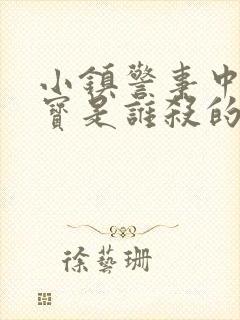 小鎮警事中
寶是誰殺的
徐藝珊